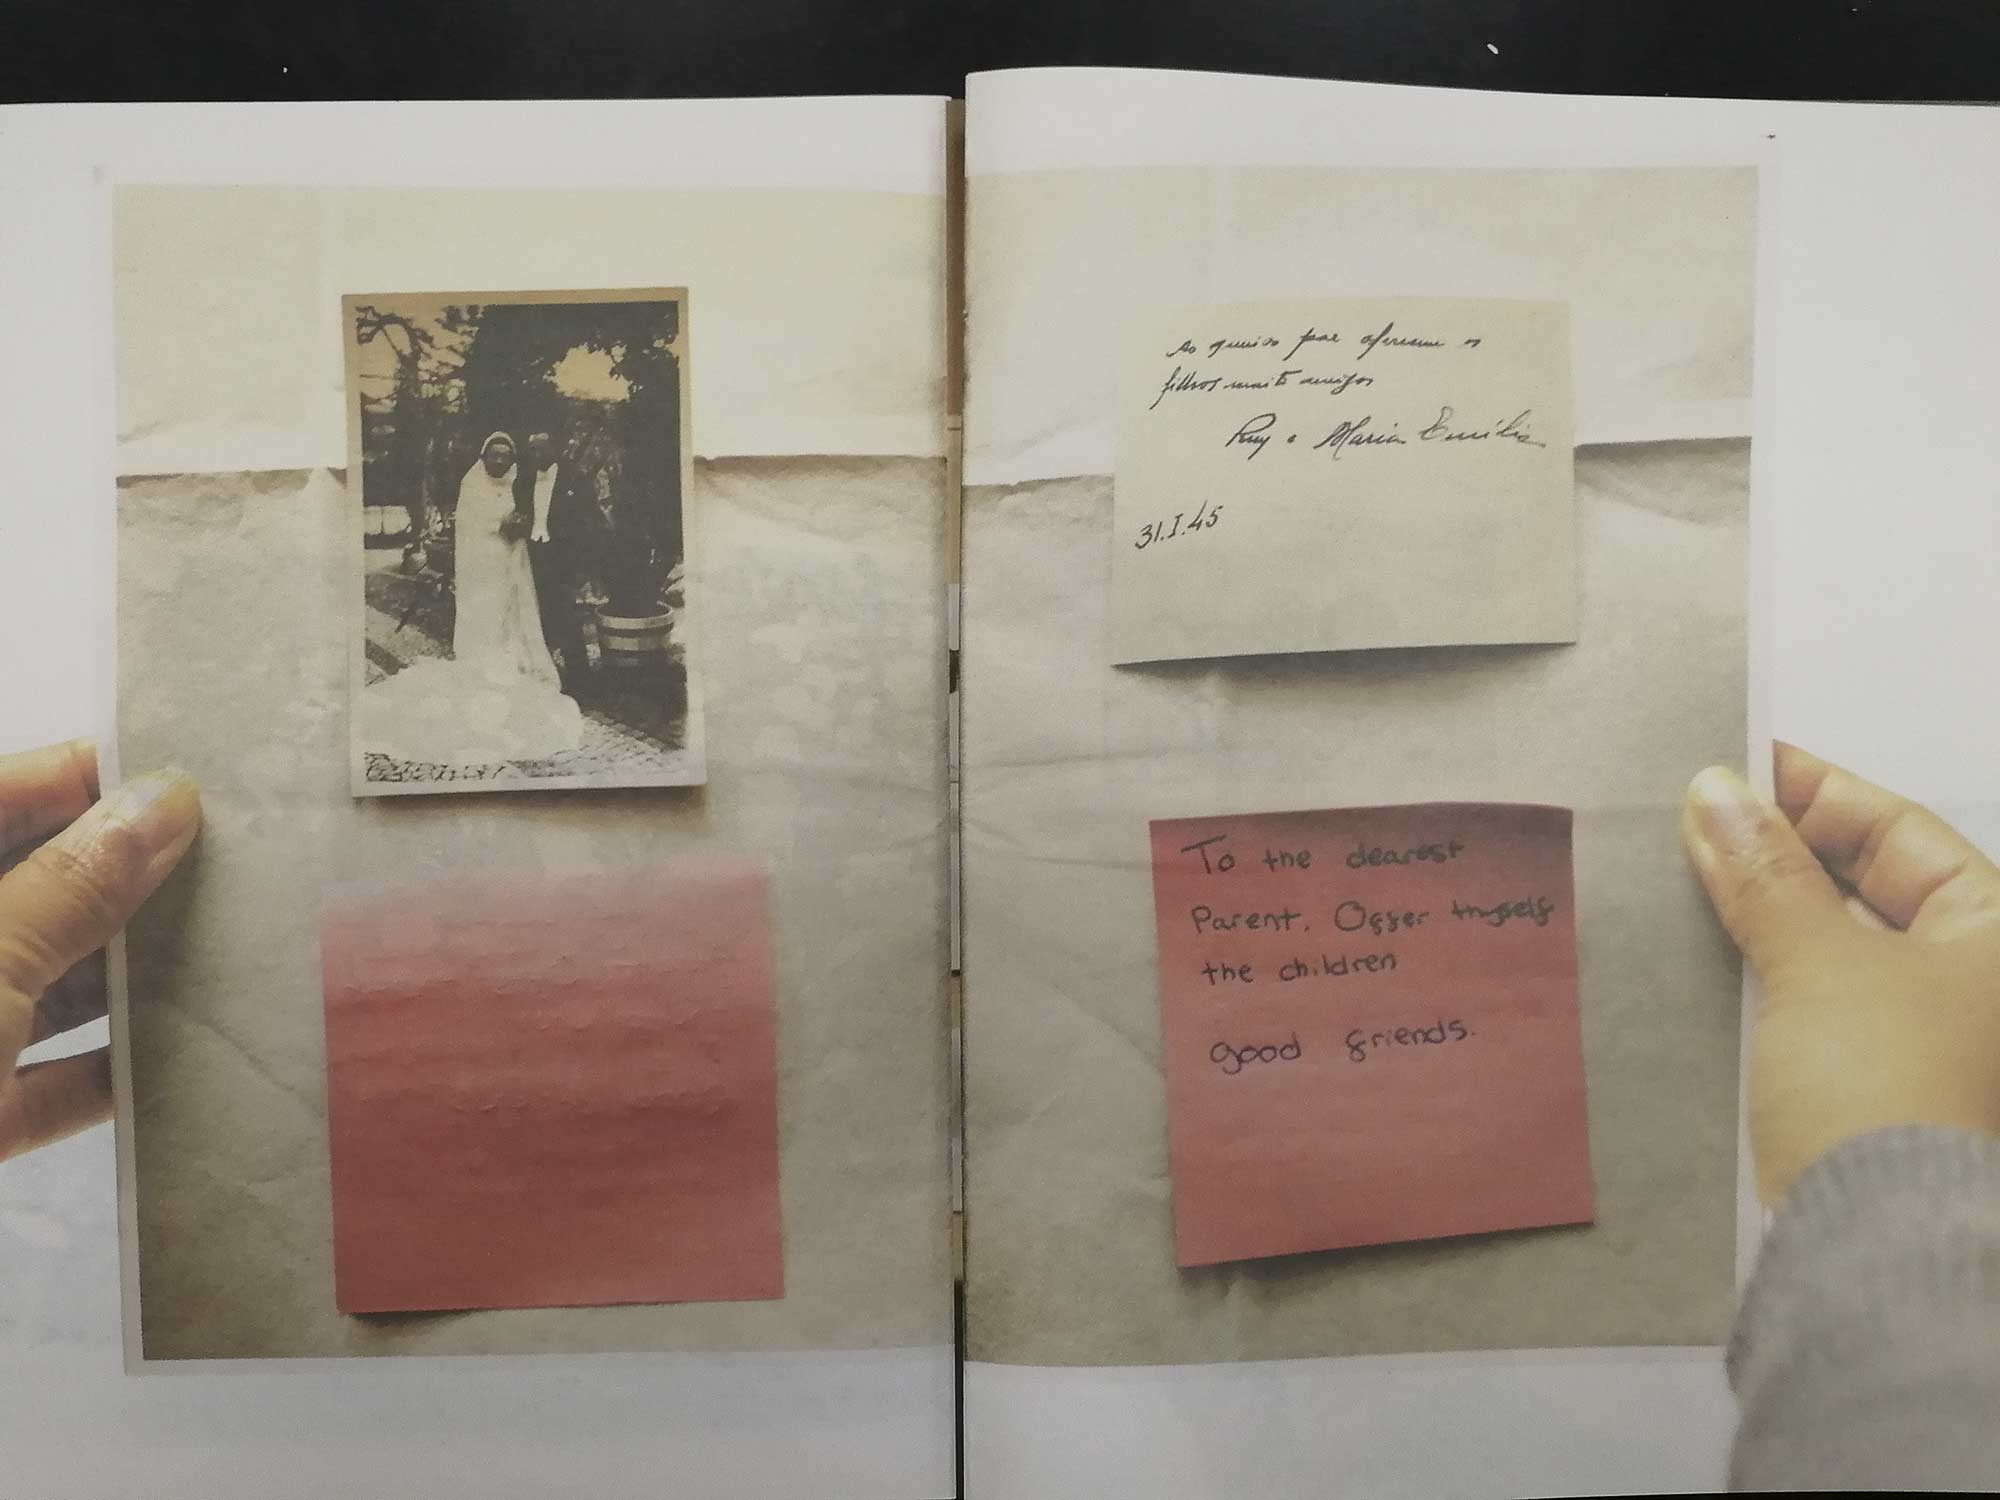 Ao querido pae oferecem os
filhos muito amigos
Ruy e Maria Emilia
31.I.45
To the dearest
Parent. Offer thyself
the children
good friends.